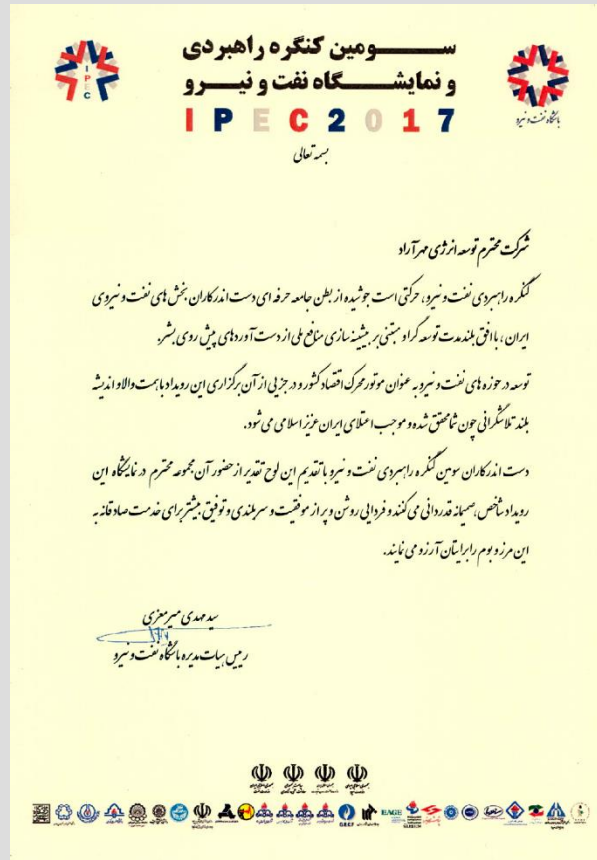 ســـومین کنگره راهبردی
و نمایشـــگاه نفت و نیـــرو
IPEC2017
I
P
E
C
باشگاه نفت و نیرو
بسمه تعالی
شرکت محترم توسعه انرژی مهرآراد
کنگره راهبردی نفت و نیرو، حرکتی است جوشیده از بطن جامعه حرفه ای دست اندرکاران بخش های نفت و نیروی
ایران، با افق بلندمدت توسعه گرا و مبتنی بر بیشینه سازی منافع ملی از دست آوردهای پیش روی بشر.
توسعه در حوزه های نفت و نیرو به عنوان موتور محرک اقتصاد کشور و در جزیی از آن برگزاری این رویداد با همت والا و اندیشه
بلند تلاشگرانی چون شما محقق شده و موجب اعتلای ایران عزیز اسلامی می شود.
دست اندرکاران سومین کنگره راهبردی نفت و نیرو با تقدیم این لوح تقدیر از حضور آن مجموعه محترم در نمایشگاه این
رویداد شاخص، صمیمانه قدردانی می کنند و فردایی روشن و پر از موفقیت و سربلندی و توفیق بیشتر برای خدمت صادقانه به
این مرز و بوم را برایتان آرزو می نمایند.
سید مهدی میرمعزی
رییس هیات مدیره باشگاه نفت و نیرو
EAGE